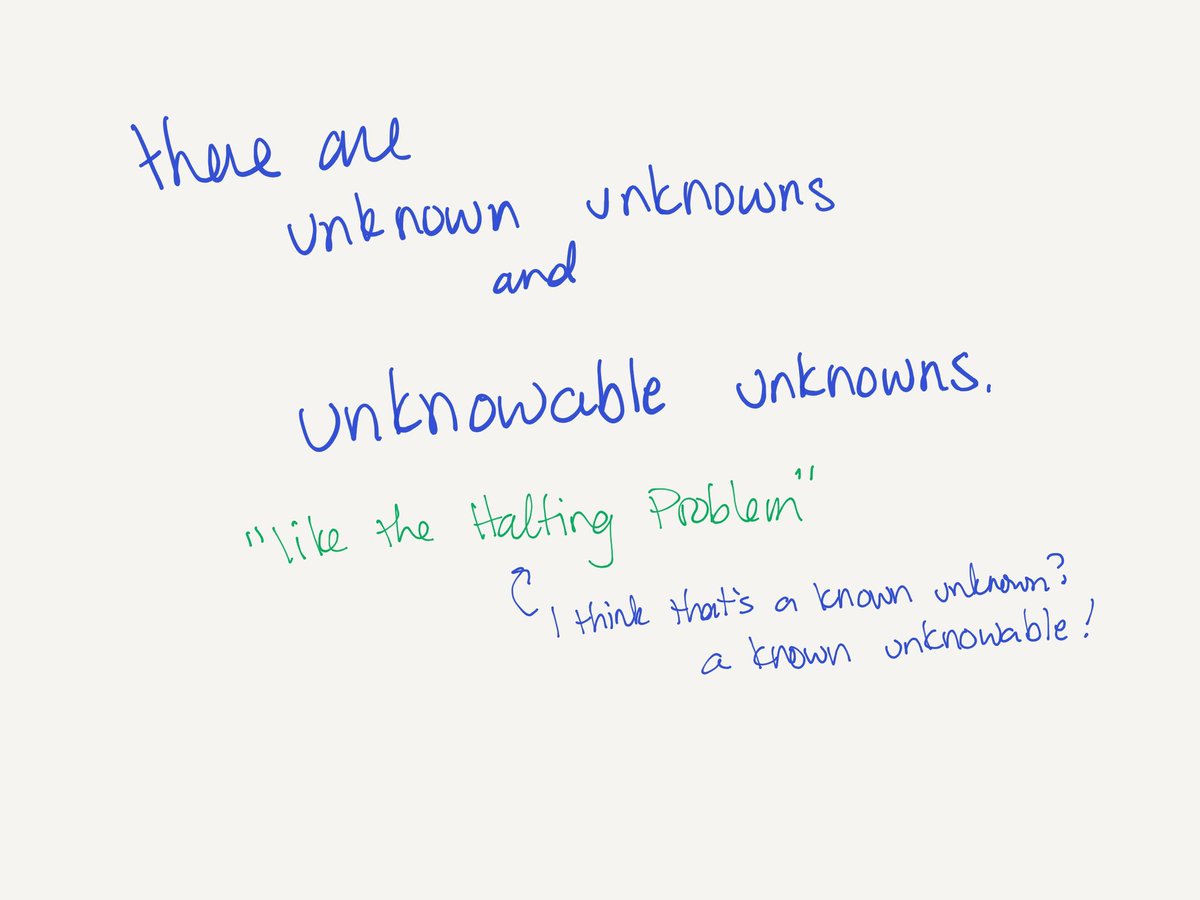 there are
unknown unknowns
and
unknowable unknowns.
"like the Halting Problem"
I think that's a known unknown?
a known unknowable!